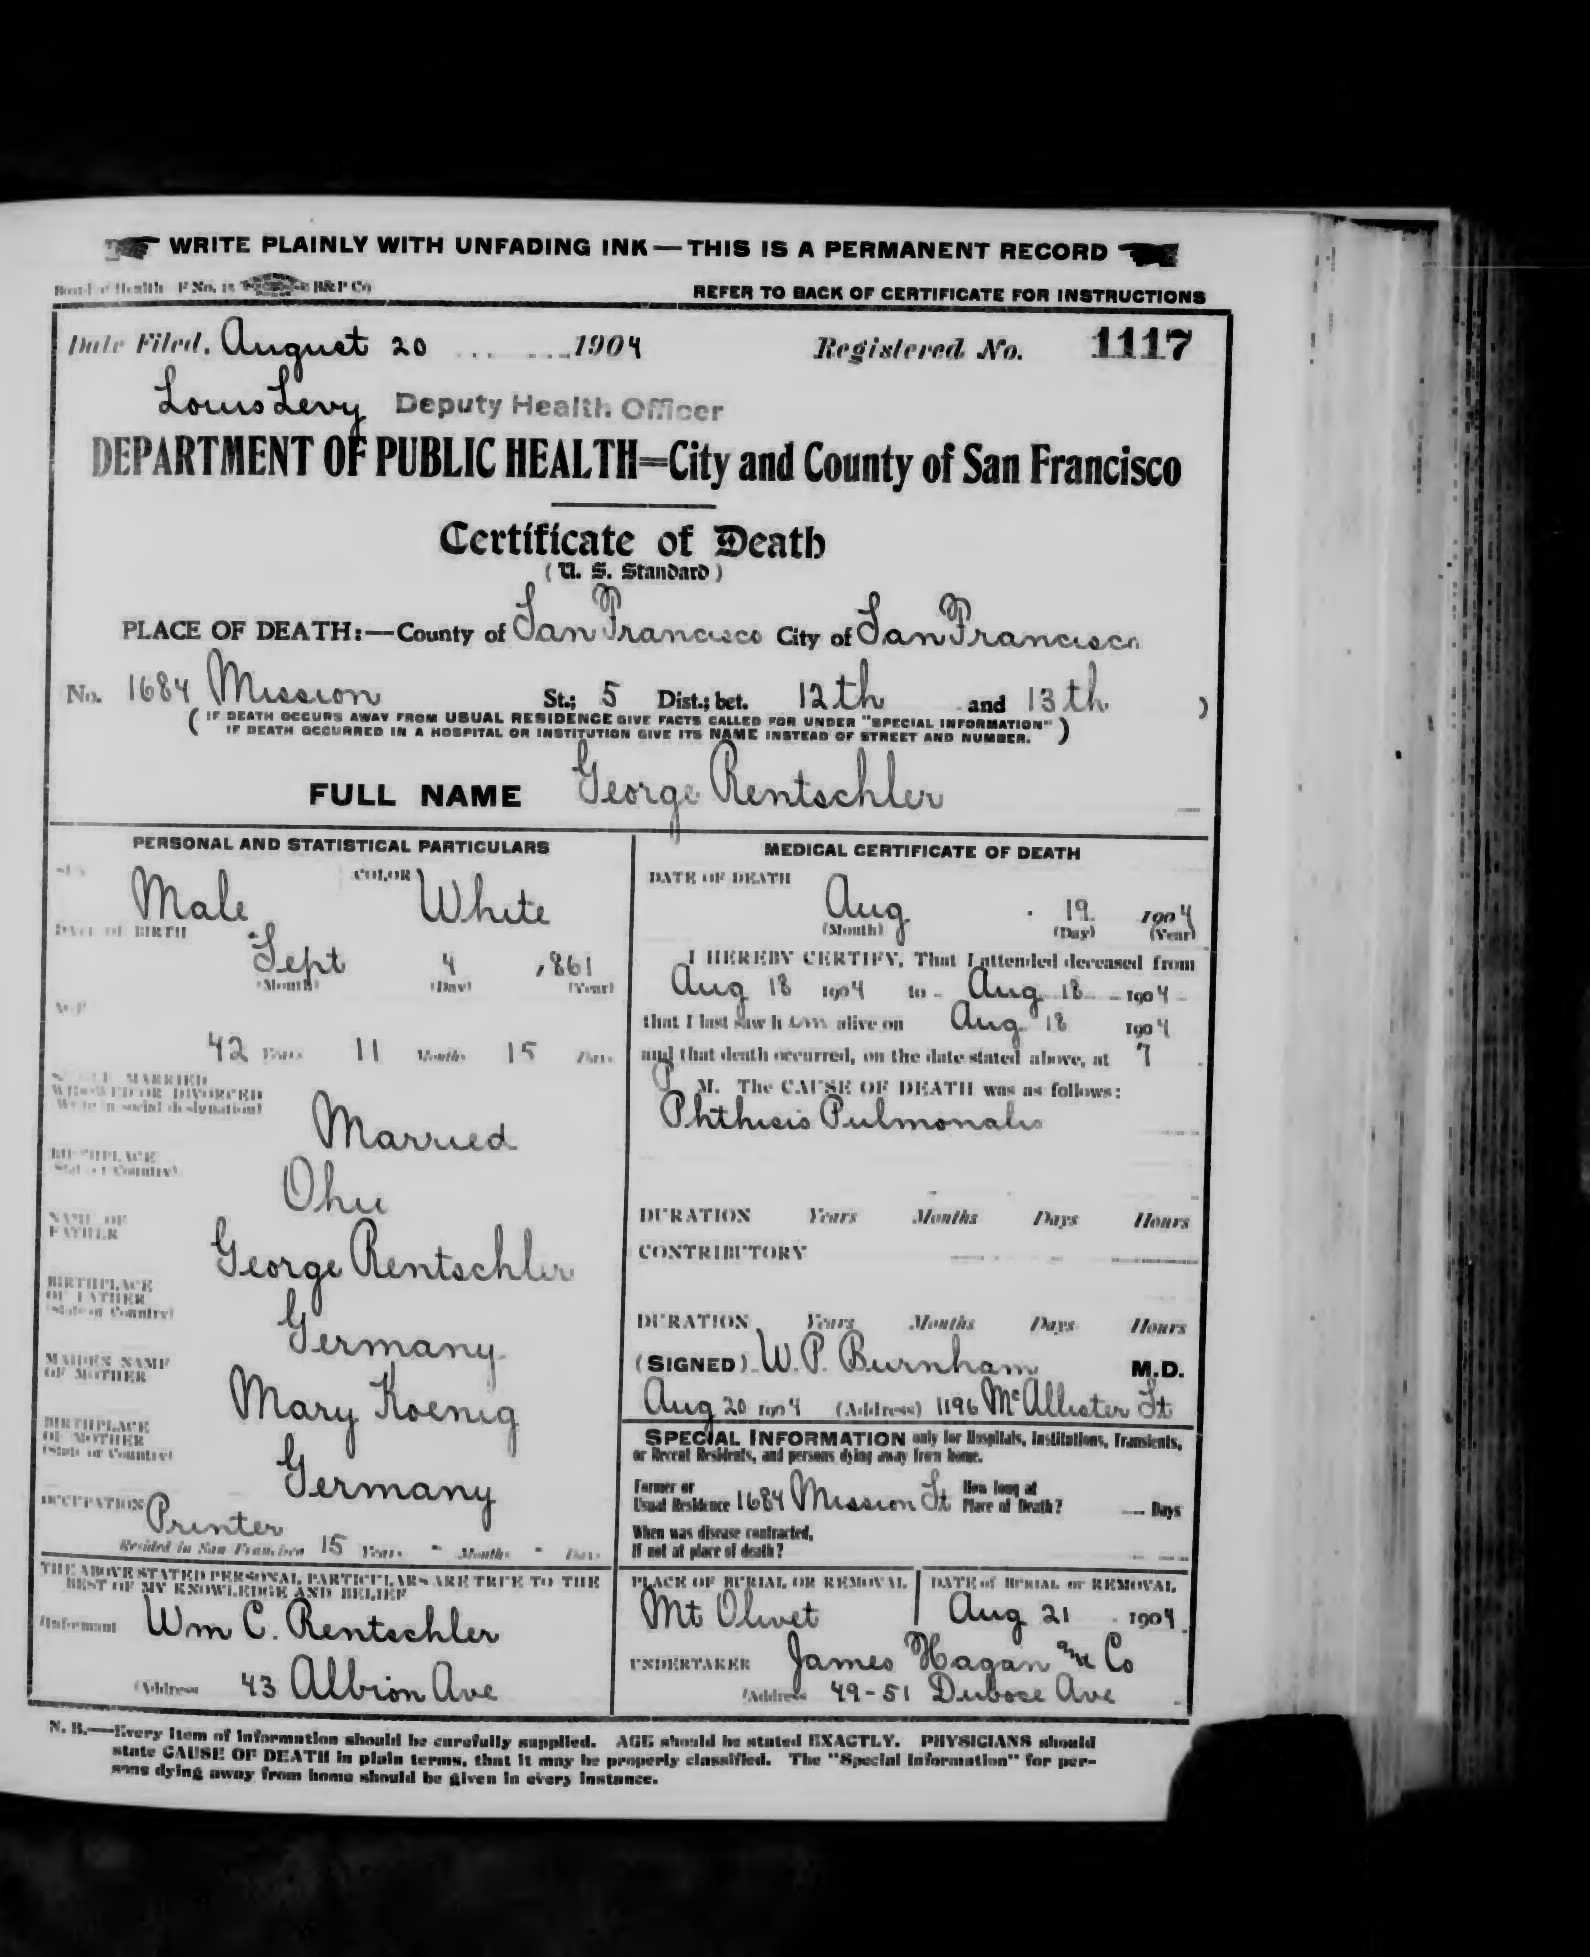 WRITE PLAINLY WITH UNFADING INK — THIS IS A PERMANENT RECORD
Board of Health—F No. 15 B&P Co
REFER TO BACK OF CERTIFICATE FOR INSTRUCTIONS
Date Filed, August 20 1904 Registered No. 1117
Louis Levy Deputy Health Officer
DEPARTMENT OF PUBLIC HEALTH=City and County of San Francisco
Certificate of Death
( U. S. Standard )
PLACE OF DEATH:—County of San Francisco City of San Francisco
No. 1684 Mission St.; 5 Dist.; bet. 12th and 13th )
( IF DEATH OCCURS AWAY FROM USUAL RESIDENCE GIVE FACTS CALLED FOR UNDER "SPECIAL INFORMATION"
IF DEATH OCCURRED IN A HOSPITAL OR INSTITUTION GIVE ITS NAME INSTEAD OF STREET AND NUMBER. )
FULL NAME George Rentschler
PERSONAL AND STATISTICAL PARTICULARS
SEX Male COLOR White
DATE OF BIRTH
Sept 4 1861
(Month) (Day) (Year)
AGE
42 Years 11 Months 15 Days
SINGLE MARRIED
WIDOWED OR DIVORCED
(Write in social designation)
Married
BIRTHPLACE
(State or Country)
Ohio
NAME OF
FATHER
George Rentschler
BIRTHPLACE
OF FATHER
(State or Country)
Germany
MAIDEN NAME
OF MOTHER
Mary Koenig
BIRTHPLACE
OF MOTHER
(State or Country)
Germany
OCCUPATION Printer
Resided in San Francisco 15 Years - Months - Days
THE ABOVE STATED PERSONAL PARTICULARS ARE TRUE TO THE
BEST OF MY KNOWLEDGE AND BELIEF
(Informant Wm C. Rentschler
(Address 43 Albion Ave
MEDICAL CERTIFICATE OF DEATH
DATE OF DEATH
Aug 19 1904
(Month) (Day) (Year)
I HEREBY CERTIFY, That I attended deceased from
Aug 18 1904 to Aug 18 1904
that I last saw him alive on Aug 18 1904
and that death occurred, on the date stated above, at 7
P M. The CAUSE OF DEATH was as follows:
Phthisis Pulmonalis
DURATION Years Months Days Hours
CONTRIBUTORY
DURATION Years Months Days Hours
(SIGNED) W. P. Burnham M.D.
Aug 20 1904 (Address) 1196 McAllister St
SPECIAL INFORMATION only for Hospitals, Institutions, Transients,
or Recent Residents, and persons dying away from home.
Former or
Usual Residence 1684 Mission St
How long at
Place of Death? Days
When was disease contracted,
If not at place of death?
PLACE OF BURIAL OR REMOVAL
Mt Olivet
DATE of BURIAL or REMOVAL
Aug 21 1904
UNDERTAKER James Hagan and Co
(Address 49-51 Duboce Ave
N. B.—Every item of information should be carefully supplied. AGE should be stated EXACTLY. PHYSICIANS should
state CAUSE OF DEATH in plain terms, that it may be properly classified. The "Special Information" for per-
sons dying away from home should be given in every instance.